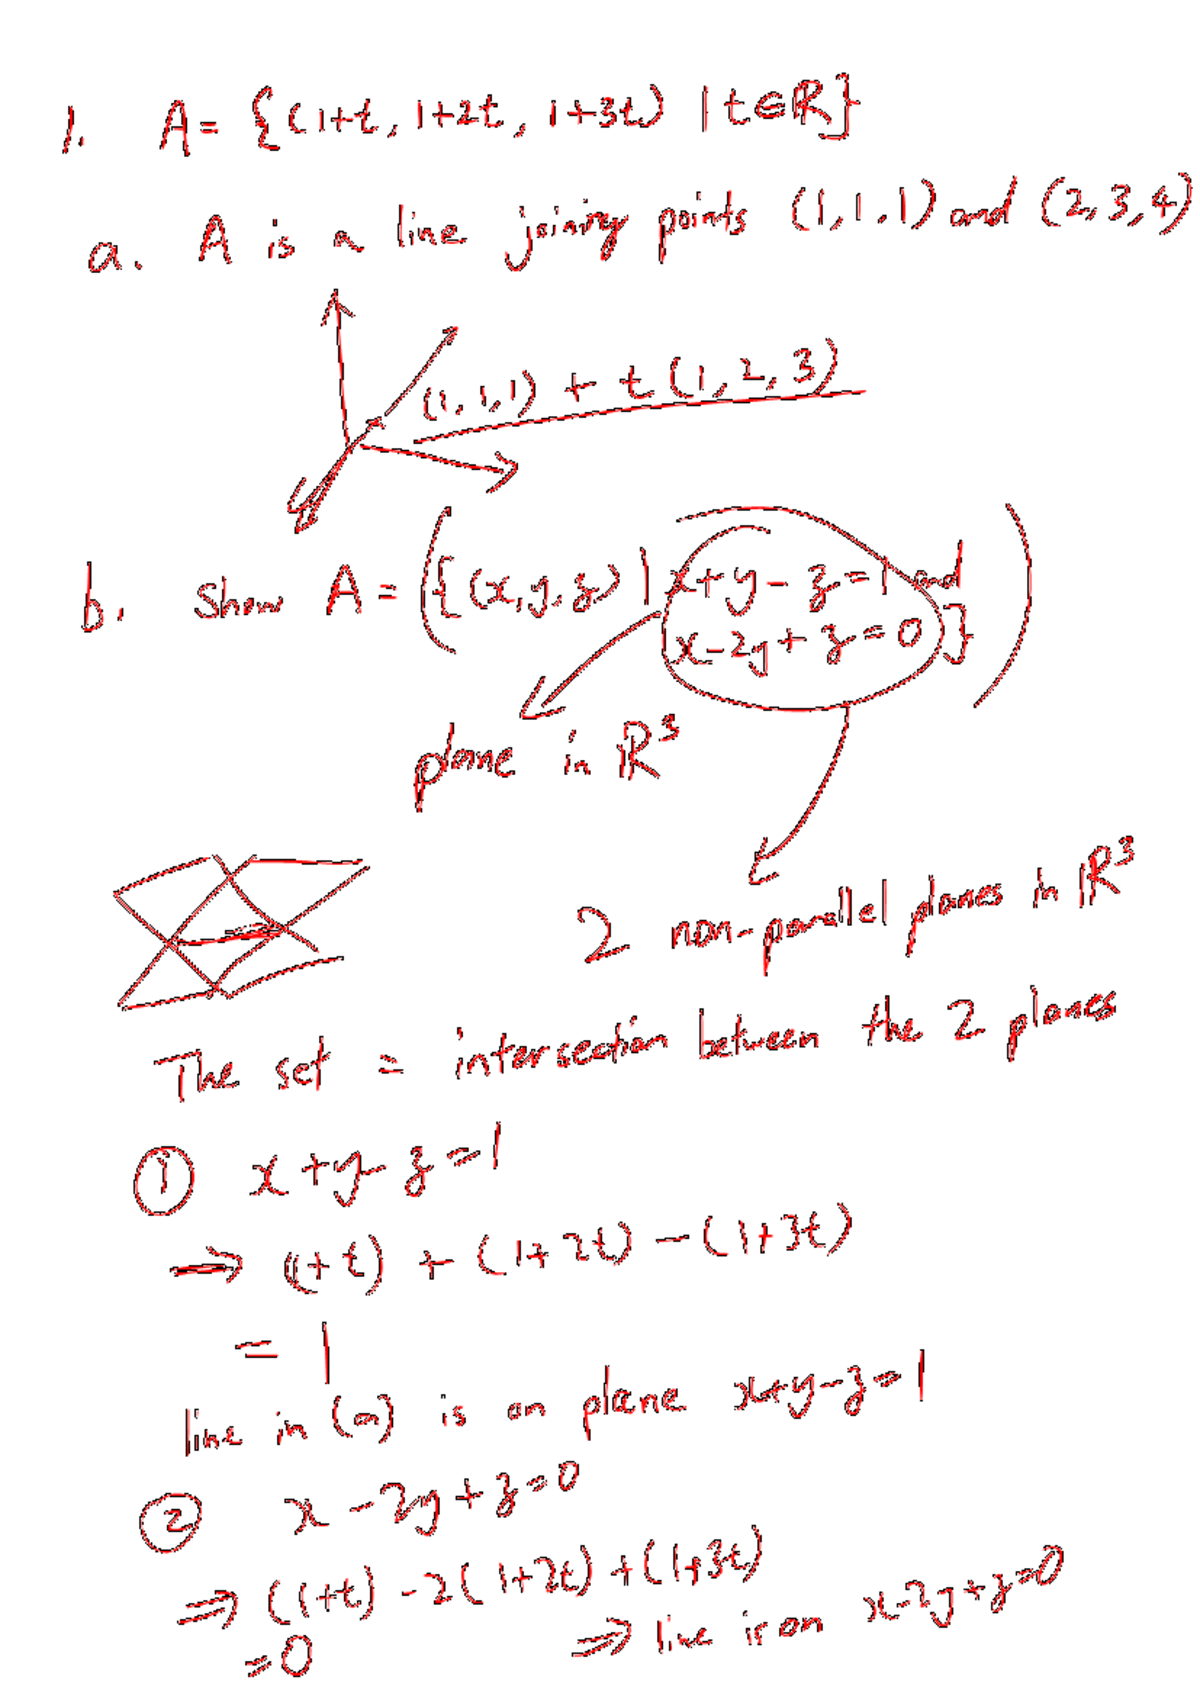 1. A = {(1+t, 1+2t, 1+3t) | t∈ℝ}
a. A is a line joining points (1,1,1) and (2,3,4)
(1,1,1) + t(1,2,3)
b. Show A = ({(x,y,z) | x+y-z=1 and
x-2y+z=0})
plane in ℝ³
2 non-parallel planes in ℝ³
The set = intersection between the 2 planes
① x+y-z=1
⇒ (1+t) + (1+2t) - (1+3t)
= 1
line in (a) is on plane x+y-z=1
② x-2y+z=0
⇒ (1+t) -2(1+2t) +(1+3t)
=0 ⇒ line is on x-2y+z=0